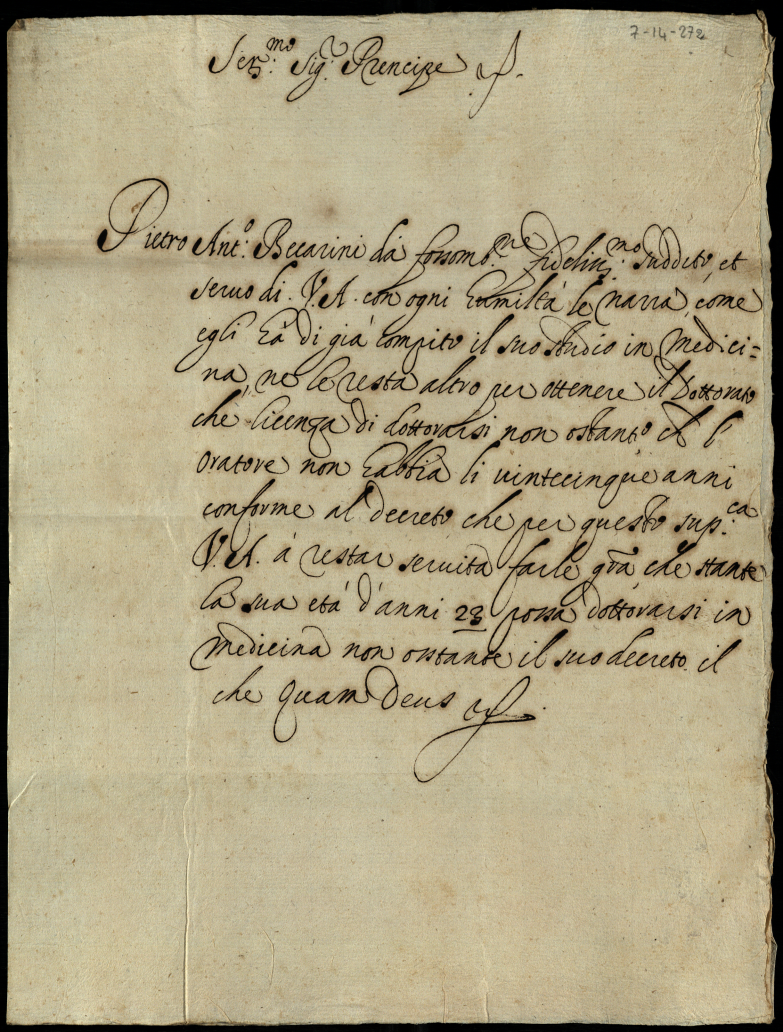 7-14-272
Ser.mo Sig.r Prencipe
Pietro Ant.o Beccarini da fossomb.ne fideliss.mo suddito, et
servo di V. A. con ogni humiltà le narra, come
egli hà di già compito il suo studio in Medici=
na, ne le resta altro per ottenere il Dottorato
che licenza di dottorarsi non ostante ch l'
oratore non habbia li vintecinque anni
conforme al decreto, che per questo sup.ca
V. A. à restar servita farle gra, che stante
la sua età d'anni 23 possa dottorarsi in
Medicina non ostante il suo decreto. il
che quam Deus